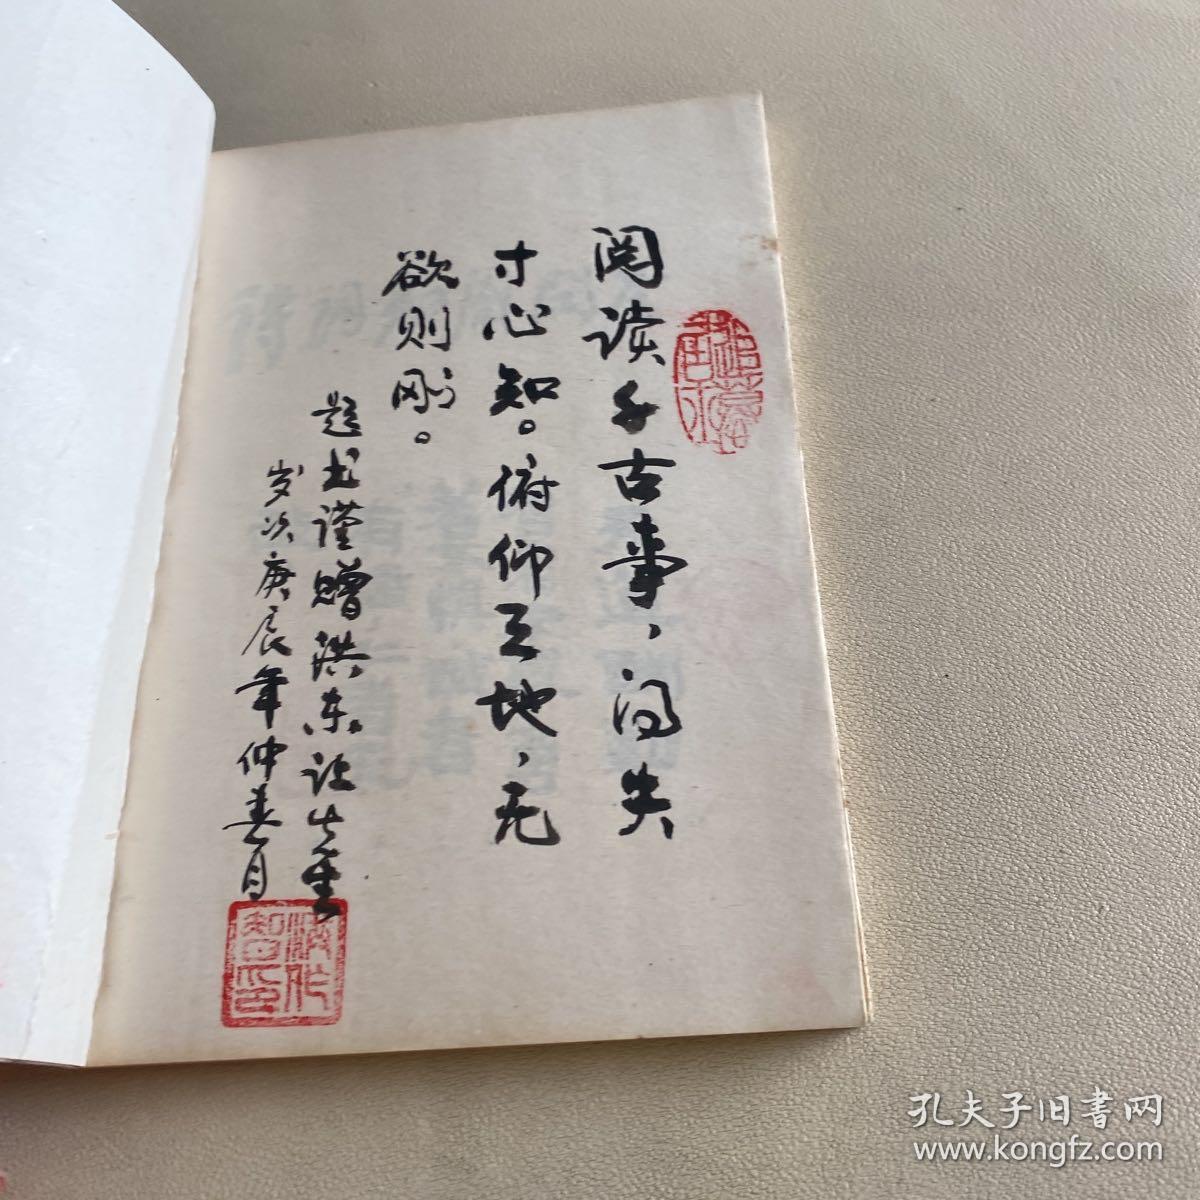 阅读千古事，得失
寸心知。俯仰天地，无
欲则刚。
题书谨赠洪东让先生
岁次庚辰年仲春月
孔夫子旧书网
www.kongfz.com